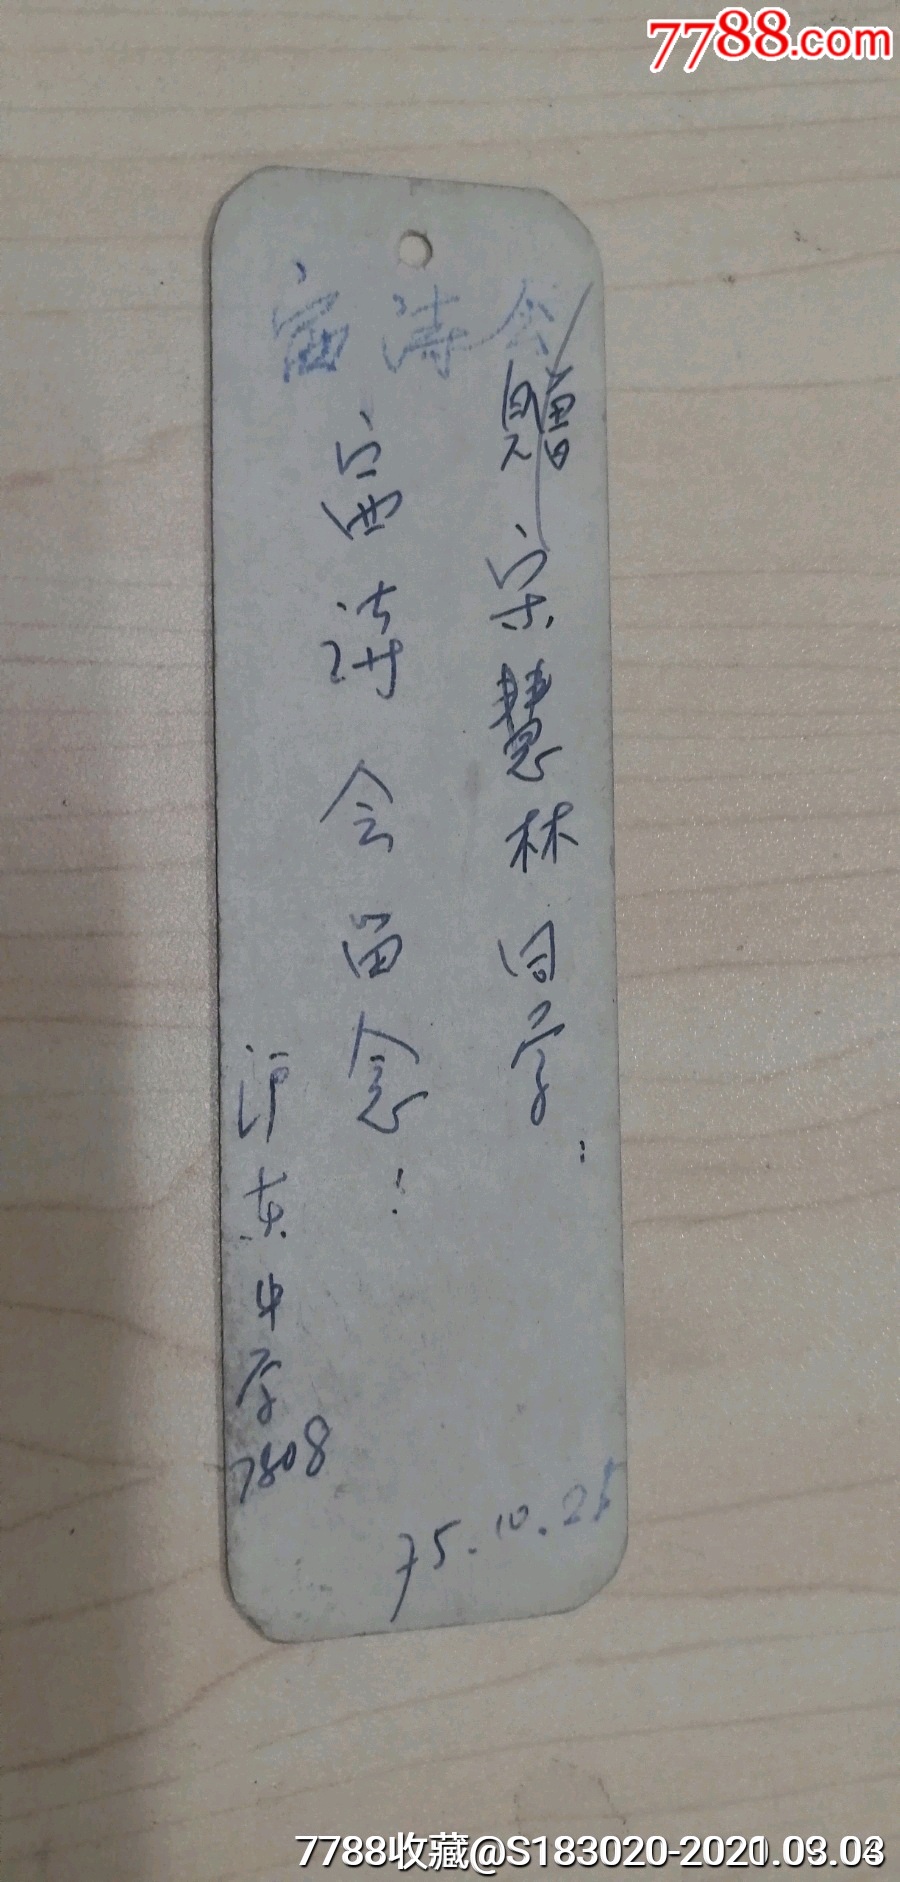 7788.com
赠宋慧林同学:
赛诗会留念!
沪东中学
7808
75.10.25
7788收藏@S183020-2021.03.03